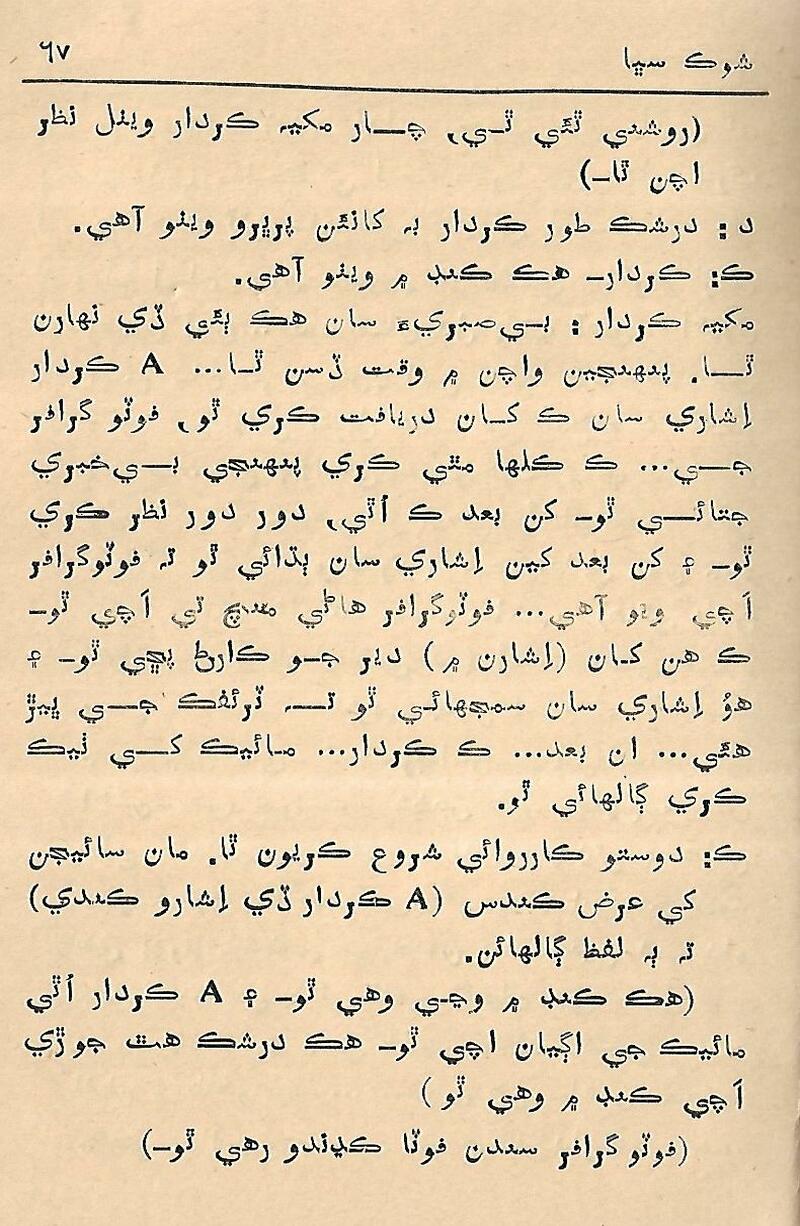 شوڪ سڀا ٦٧
(روشني ٿئي ٿي، چار مکيه ڪردار ويٺل نظر
اچن ٿا-)
د : درشڪ طور ڪردار به کانئن پريرو ويٺو آهي.
ڪ: ڪردار- هڪ ڪنڊ ۾ ويٺو آهي.
مکيه ڪردار : بي‌صبريءَ سان هڪ ٻئي ڏي نهارن
ٿا. پنهنجين واچن ۾ وقت ڏسن ٿا... A ڪردار
اِشاري سان ڪ کان دريافت ڪري ٿو، فوٽو گرافر
جي... ڪ ڪلها مٿي ڪري پنهنجي بي‌خبري
جتائي ٿو- کن بعد ڪ اُٿي، دور دور نظر ڪري
ٿو- ۽ کن بعد کين اِشاري سان ٻڌائي ٿو ته فوٽوگرافر
اَچي ويو آهي... فوٽوگرافر هاڻي منچ تي اَچي ٿو-
ڪ هن کان (اِشارن ۾) دير جو ڪارڻ پڇي ٿو- ۽
هوُ اِشاري سان سمجهائي ٿو ته ٽرئفڪ جي ڀيڙ
هئي... ان بعد... ڪ ڪردار... مائيڪ کي ٺيڪ
ڪري ڳالهائي ٿو.
ڪ: دوستو ڪارروائي شروع ڪريون ٿا. مان سائيجن
کي عرض ڪندس (A ڪردار ڏي اِشارو ڪندي)
ته ٻه لفظ ڳالهائن.
(هڪ ڪنڊ ۾ وڃي وهي ٿو- ۽ A ڪردار اُٿي
مائيڪ جي اڳيان اچي ٿو- هڪ درشڪ هٿ جوڙي
اَچي ڪنڊ ۾ وهي ٿو )
(فوٽو گرافر سندن فوٽا ڪڍندو رهي ٿو-)